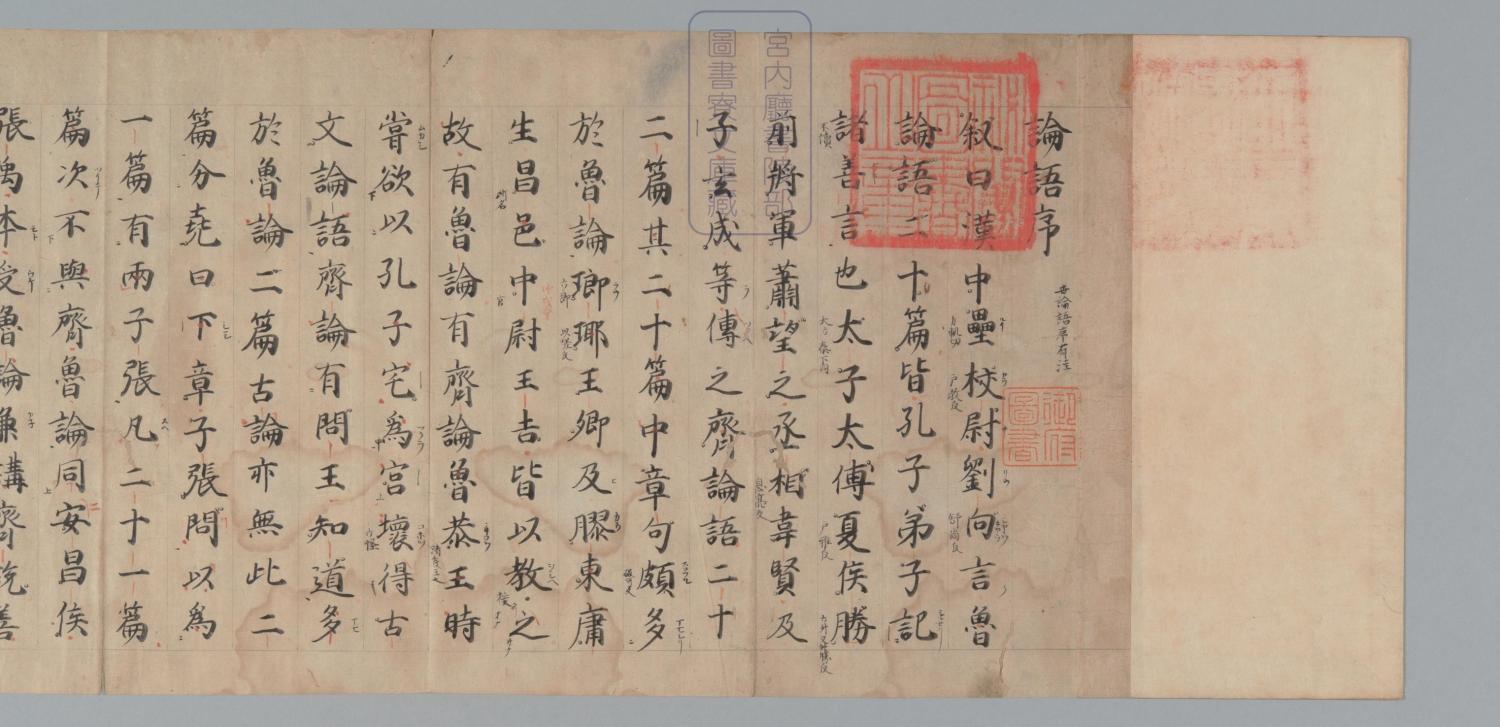 論語序
叙曰漢中壘校尉劉向言魯
論語二十篇皆孔子弟子記
諸善言也太子太傅夏侯勝
前將軍蕭望之丞相韋賢及
子玄成等傳之齊論語二十
二篇其二十篇中章句頗多
於魯論瑯琊王卿及膠東庸
生昌邑中尉王吉皆以教之
故有魯論有齊論魯恭王時
嘗欲以孔子宅爲宮壞得古
文論語齊論有問王知道多
於魯論二篇古論亦無此二
篇分堯曰下章子張問以爲
一篇有兩子張凡二十一篇
篇次不與齊魯論同安昌侯
張禹本受魯論兼講齊說善
宮内廳書陵部
圖書寮文庫藏
御府
圖書